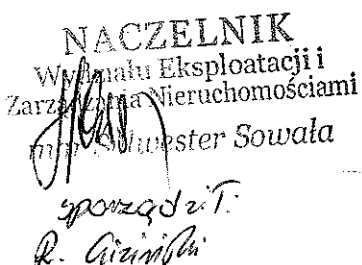 NACZELNIK
Wydziału Eksploatacji i
Zarządzania Nieruchomościami
mgr Sylwester Sowała
sporządził:
R.